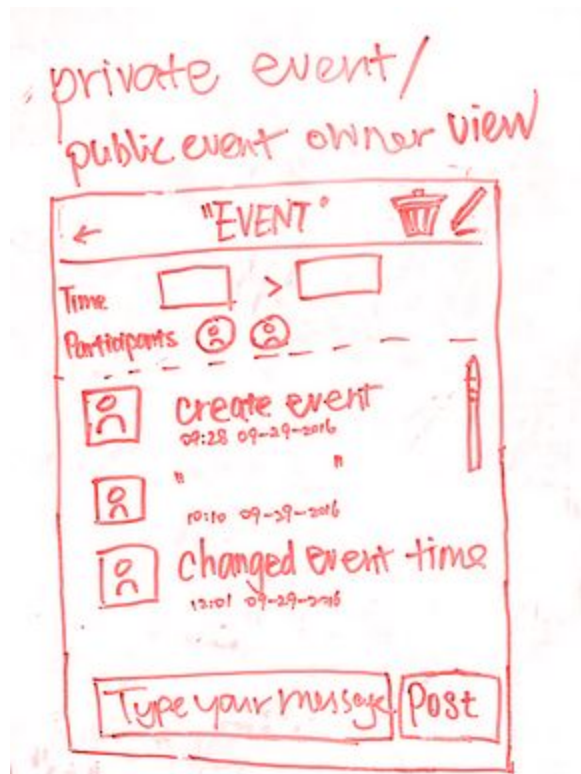 private event/
public event owner view
← "EVENT"
Time >
Participants
create event
09:28 09-29-2016
" "
10:10 09-29-2016
changed event time
12:01 09-29-2016
Type your message Post